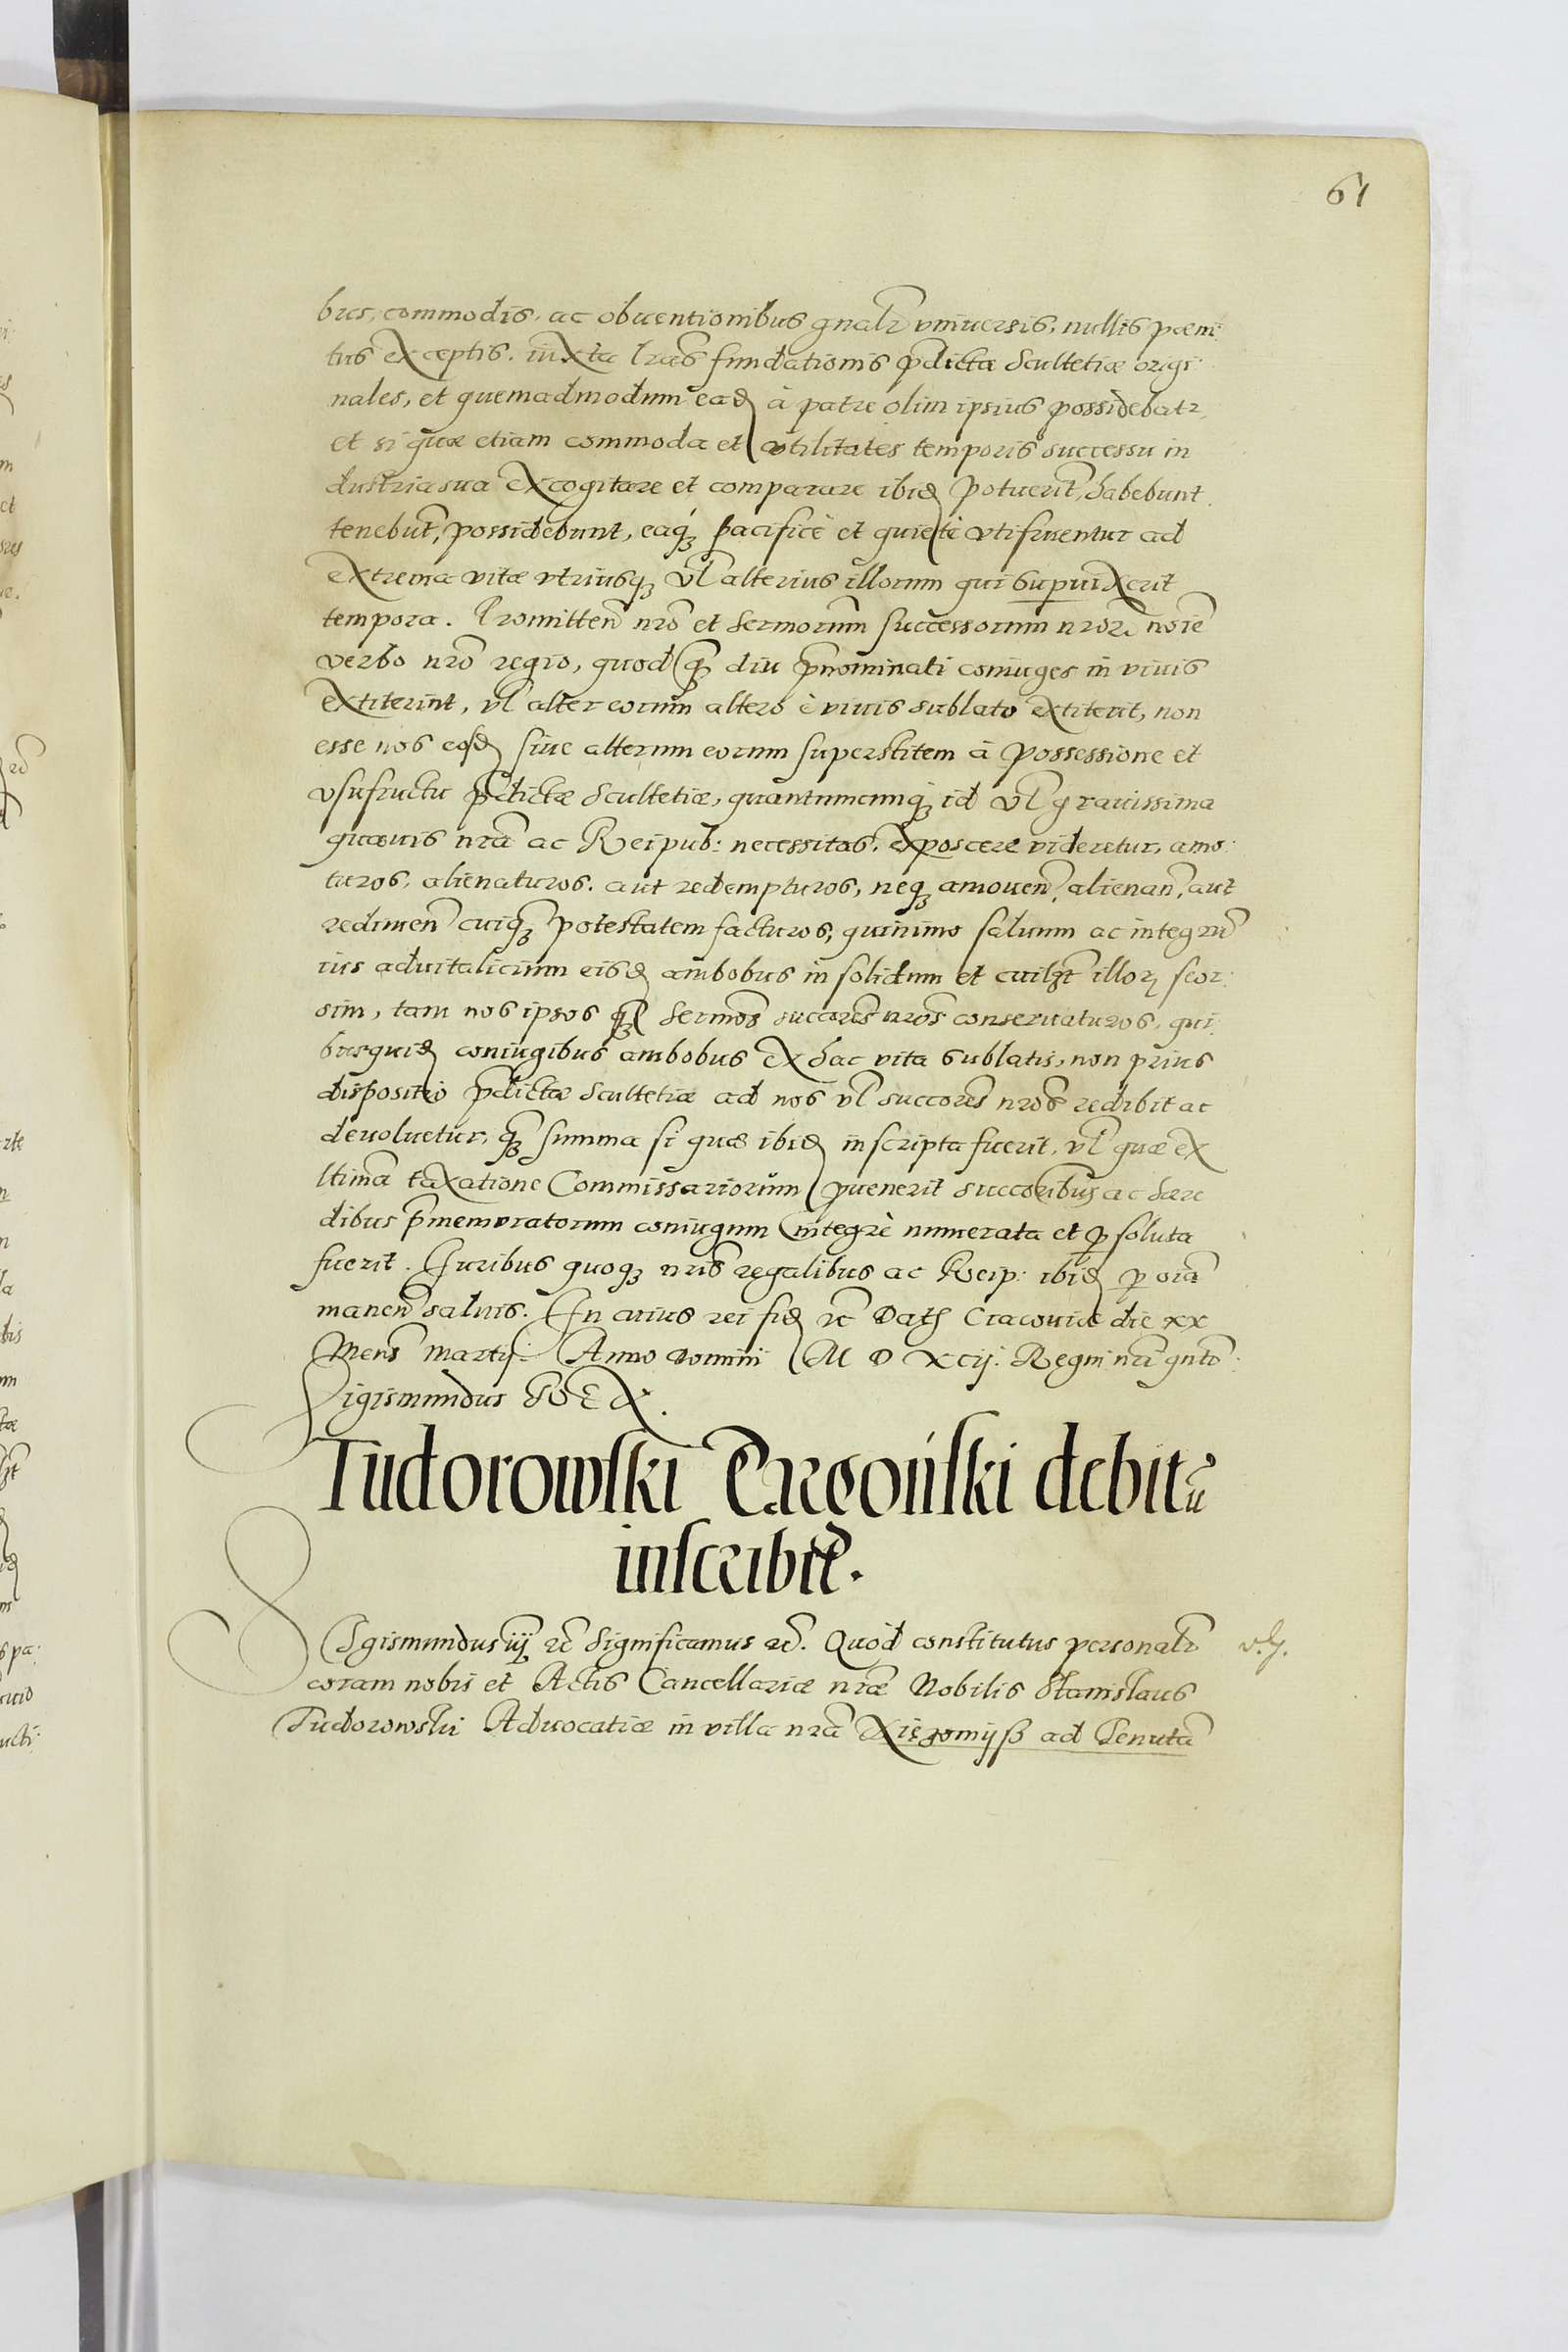 61
bus, commodis, ac obuentionibus gnalr vniuersis, nullis pœni
tus exceptis. iuxta lras fundationis pdictæ Scultetiæ origi
nales, et quemadmodum ead à patre olim ipsius possidebatr,
et si quæ etiam commoda et vtilitates temporis successu in
dustria sua excogitare et comparare ibid potuerit, habebunt
tenebut, possidebunt, eaq pacificè et quietè vtifruentur ad
extrema vitæ vtriusq vl alterius illorum qui supuixerit
tempora. Promitten nro et Sermorum successorum nror noie
verbo nro regio, quod q diu pnominati coniuges in viuis
extiterint, vl alter eorum altero è viuis sublato extiterit, non
esse nos eosd siue alterum eorum superstitem à possessione et
vsufructu pdictæ Scultetiæ, quantumcunq id vl grauissima
quæuis nra ac Reipub: necessitas, exposcere videretur, amo:
turos, alienaturos, aut redempturos, neq amouen, alienan, aut
redimen cuiq potestatem facturos, quinimo saluum ac integru
ius aduitalicium eisd ambobus in solidum et cuilzt illor seor:
sim, tam nos ipsos q Sermos succores nros conseruaturos, qui
busquid coniugibus ambobus ex hac vita sublatis, non prius
dispositio pdictæ Scultetiæ ad nos vl succores nros redibit ac
deuoluetur, q summa si quæ ibid inscripta fuerit, vl quæ ex
ltima taxatione Commissariorum puenerit succoribus ac hære
dibus pmemoratorum coniugum integrè numerata et psoluta
fuerit. Iuribus quoq nris regalibus ac Reip: ibid p oia
manen saluis. In cuius rei fid rc Dat Cracouiæ die xx
Mens Martij. Anno Domini M D XCij. Regni nri qnto:
Sigismundus REX.
Tudorowski Cargoński debitu
inscribit.
SIgismundus iij rc Significamus rc. Quod constitutus personalr
v.G.
coram nobis et Actis Cancellariæ nræ Nobilis Stanislaus
Tudorowski Aduocatiæ in villa nra Xięzomijß ad Tenuta